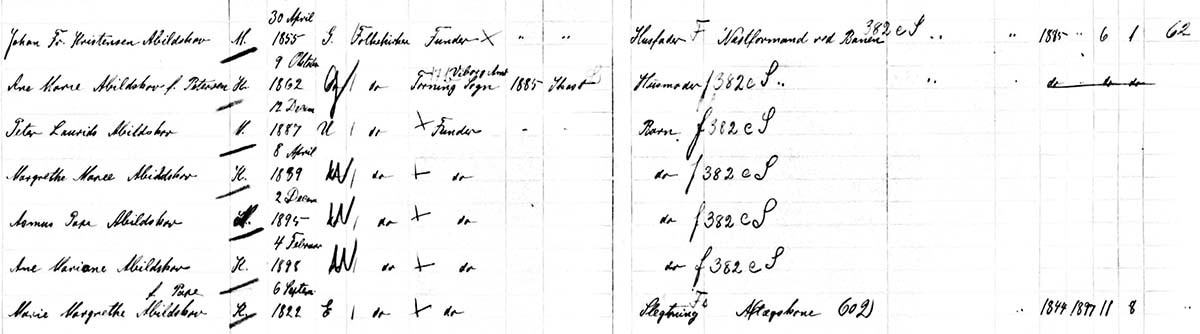 30 April
Johan Fr. Kristensen Abildskov M. 1855 G. Folkekirken Funder × " " Husfader F Vagtformand ved Banen 382 c S " " 1885 " 6 1 62
9 Oktober
Ane Marie Abildskov f. Petersen K. 1862 G do Torning Sogn Viborg Amt 1885 Ikast Husmoder f 382 c S " " do do do
12 Decem
Peter Laurids Abildskov M. 1887 U do × Funder " " Barn f 382 c S
8 April
Margrethe Marie Abildskov K. 1889 U do + do do f 382 c S
2 Decem
Asmus Pape Abildskov M. 1895 U do + do do f 382 c S
4 Februar
Ane Mariane Abildskov K. 1898 U do + do do f 382 c S
f. Pape 6 Septem
Marie Margrethe Abildskov K. 1822 E do + do Slegtning Fo Aftægtskone 602) " 1844 1897 11 8